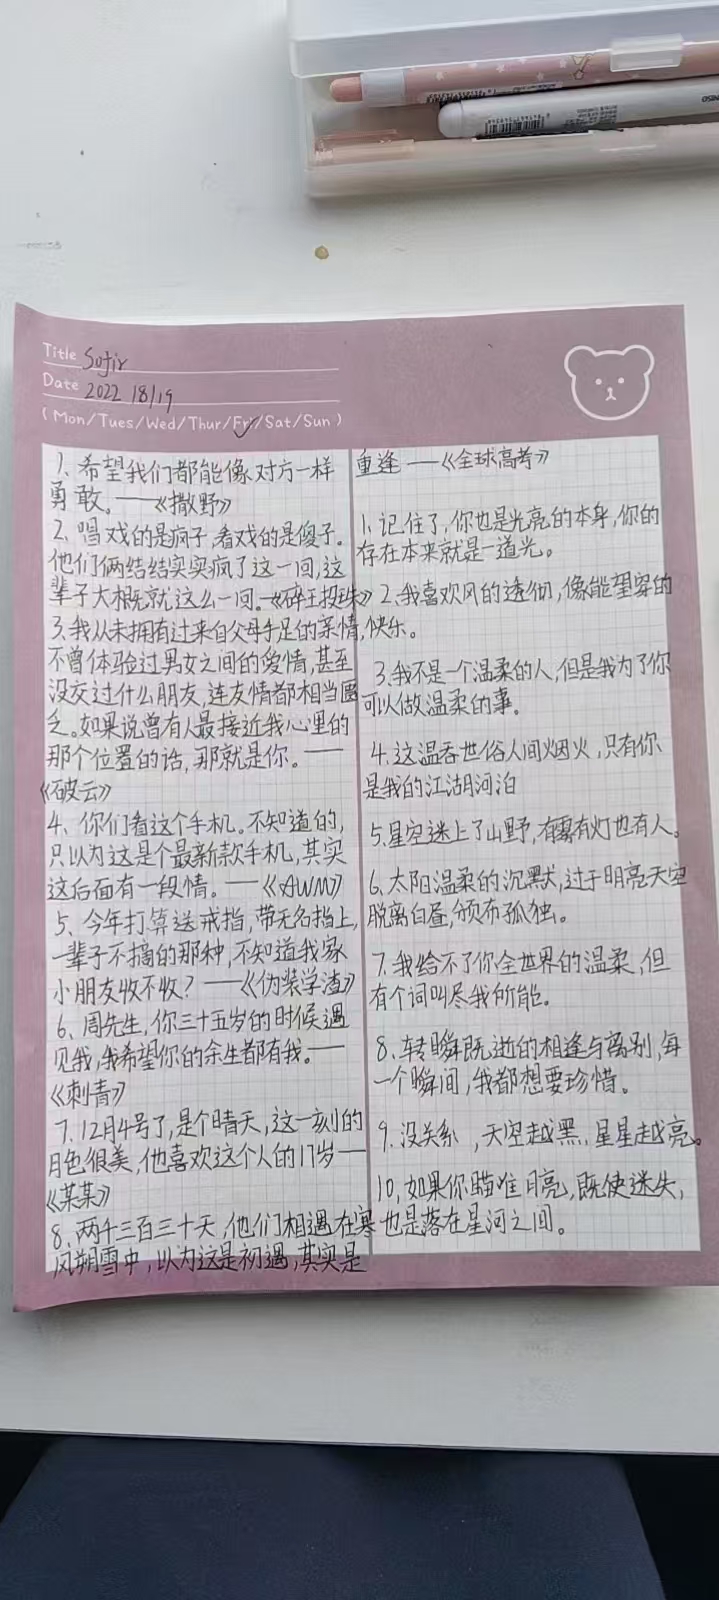 Title
Date 2022 18/19
( Mon/Tues/Wed/Thur/Fri/Sat/Sun )
1、希望我们都能像对方一样
勇敢。——《撒野》
2、唱戏的是疯子,看戏的是傻子。
他们俩结结实实疯了这一回,这
辈子大概就这么一回。《碎玉投珠》
3、我从未拥有过来自父母手足的亲情,
不曾体验过男女之间的爱情,甚至
没交过什么朋友,连友情都相当匮
乏。如果说曾有人最接近我心里的
那个位置的话,那就是你。——
《破云》
4、你们看这个手机。不知道的,
只以为这是个最新款手机,其实
这后面有一段情。——《AWM》
5、今年打算送戒指,带无名指上,
一辈子不摘的那种,不知道我家
小朋友收不收?——《伪装学渣》
6、周先生,你三十五岁的时候遇
见我,我希望你的余生都有我。——
《刺青》
7、12月4号了,是个晴天,这一刻的
月色很美,他喜欢这个人的17岁——
《某某》
8、两千三百三十天,他们相遇在寒
风朔雪中,以为这是初遇,其实是
重逢——《全球高考》
1、记住了,你也是光亮的本身,你的
存在本来就是一道光。
2、我喜欢风的透彻,像能望穿的
快乐。
3、我不是一个温柔的人,但是我为了你
可以做温柔的事。
4、这温吞世俗人间烟火,只有你
是我的江湖河泊
5、星空迷上了山野,有雾有灯也有人。
6、太阳温柔的沉默,过于明亮天空
脱离白昼,颁布孤独。
7、我给不了你全世界的温柔,但
有个词叫尽我所能。
8、转瞬既逝的相逢与离别,每
一个瞬间,我都想要珍惜。
9、没关系,天空越黑,星星越亮。
10、如果你瞄准月亮,既使迷失,
也是落在星河之间。